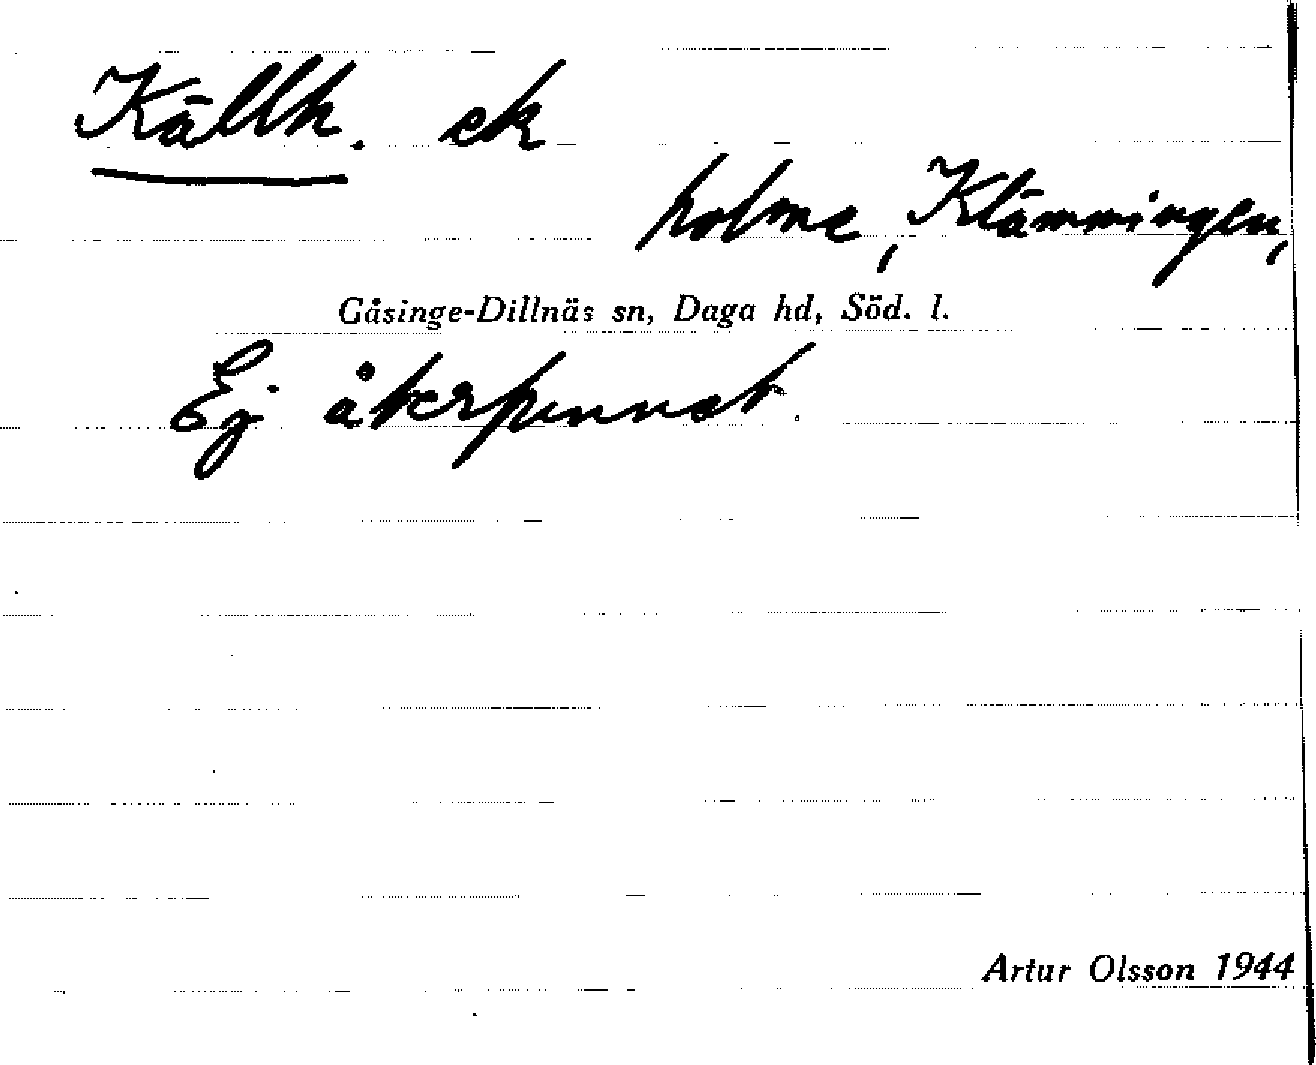 Källh. ek
holme, Klämmingen,
Gåsinge-Dillnäs sn, Daga hd, Söd. l.
Ej återfunnet.
Artur Olsson 1944